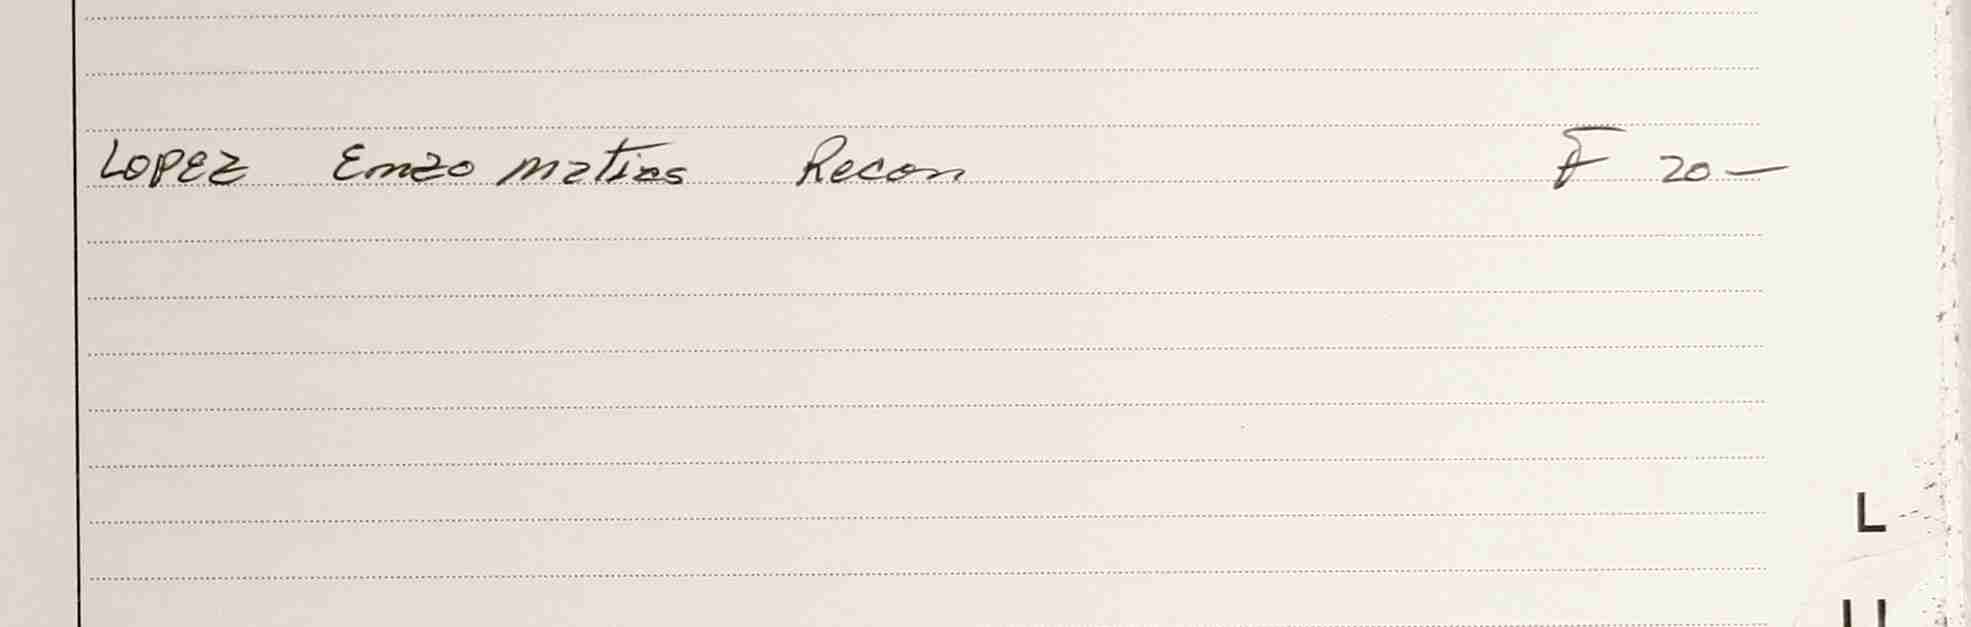 Lopez Enzo matias Recon F 20-
L